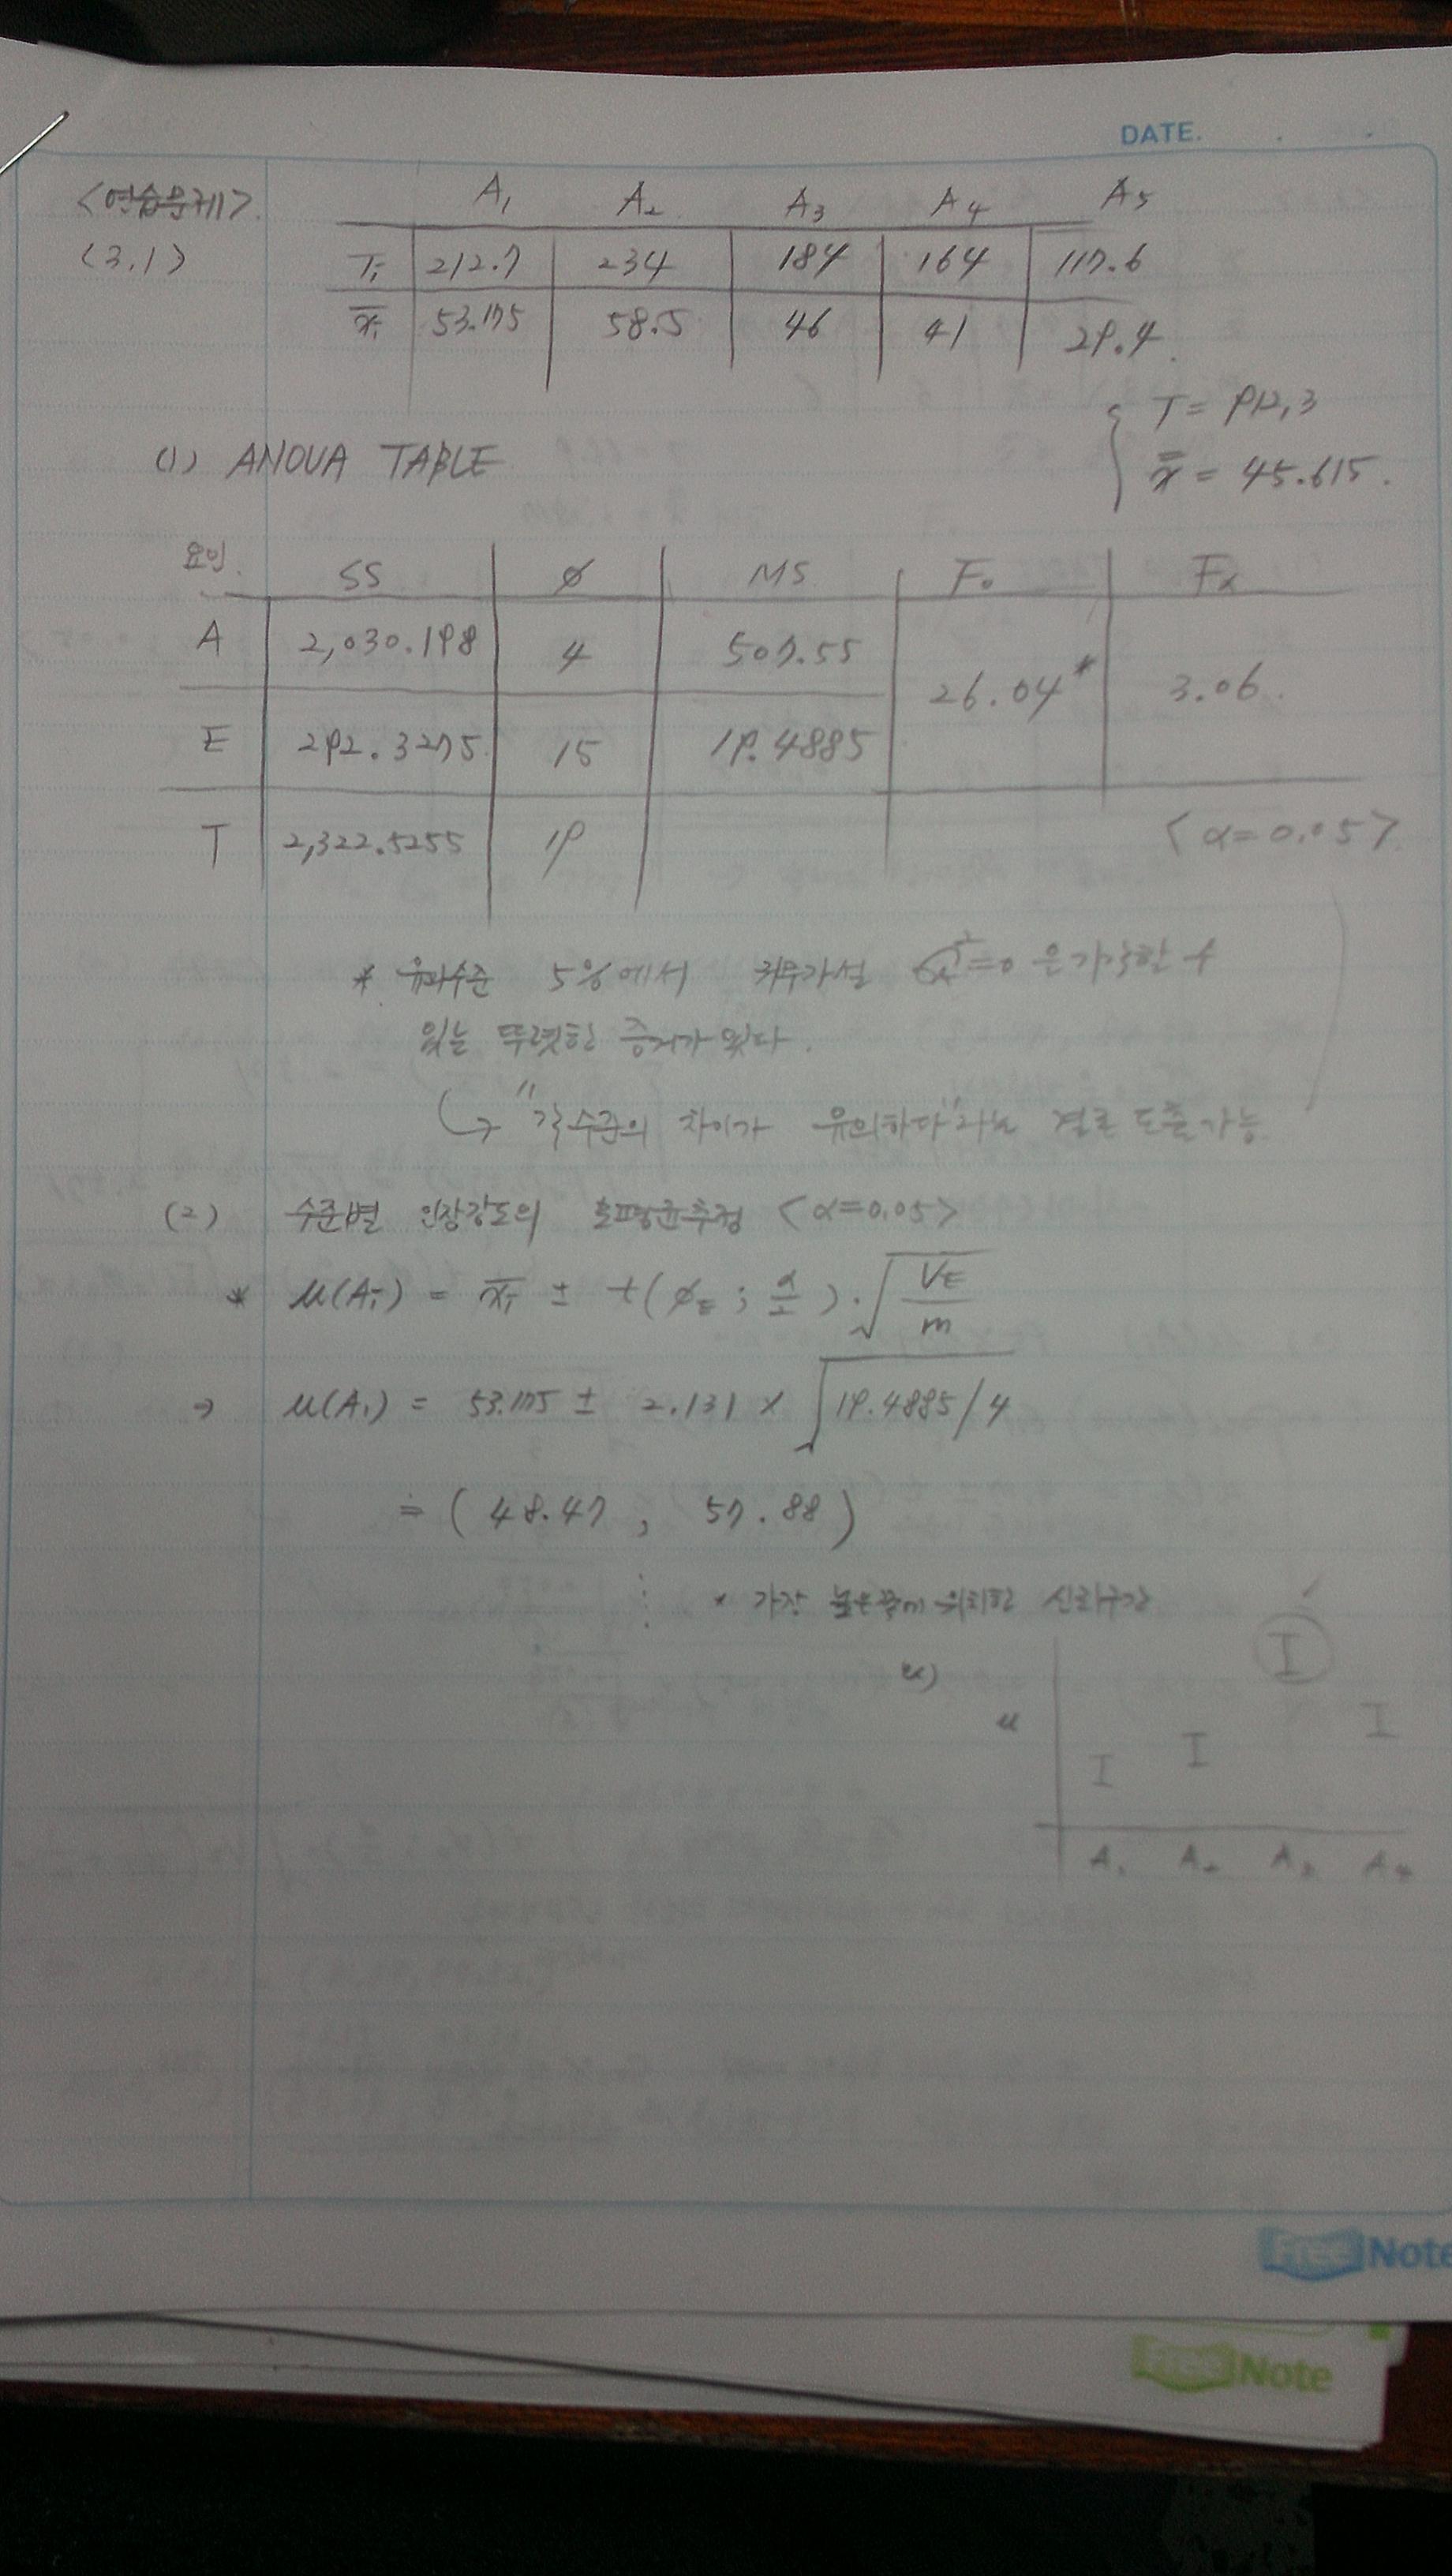 DATE. . .
<연습문제>
A₁ A₂ A₃ A₄ A₅
(3.1) Tᵢ 212.7 234 184 164 117.6
x̄ᵢ 53.175 58.5 46 41 29.4
T = 912.3
(1) ANOVA TABLE
x̿ = 45.615.
요인. SS ø MS F₀ Fα
A 2,030.198 4 507.55
26.04* 3.06.
E 292.3275 15 19.4885
T 2,322.5255 19
<α=0.05>
* 유의수준 5%에서 귀무가설 σA²=0 은 기각할 수
있는 뚜렷한 증거가 있다.
↳ "각 수준의 차이가 유의하다"라는 결론 도출 가능
(2) 수준별 인장강도의 모평균추정 <α=0.05>
* μ(Aᵢ) = x̄ᵢ ± t(øE ; α/2) · √(VE/m)
→ μ(A₁) = 53.175 ± 2.131 × √19.4885/4
= ( 48.47 , 57.88 )
⋮ * 가장 높은 곳에 위치한 신뢰구간
ex)
μ
A₁ A₂ A₃ A₄
FreeNote
FreeNote